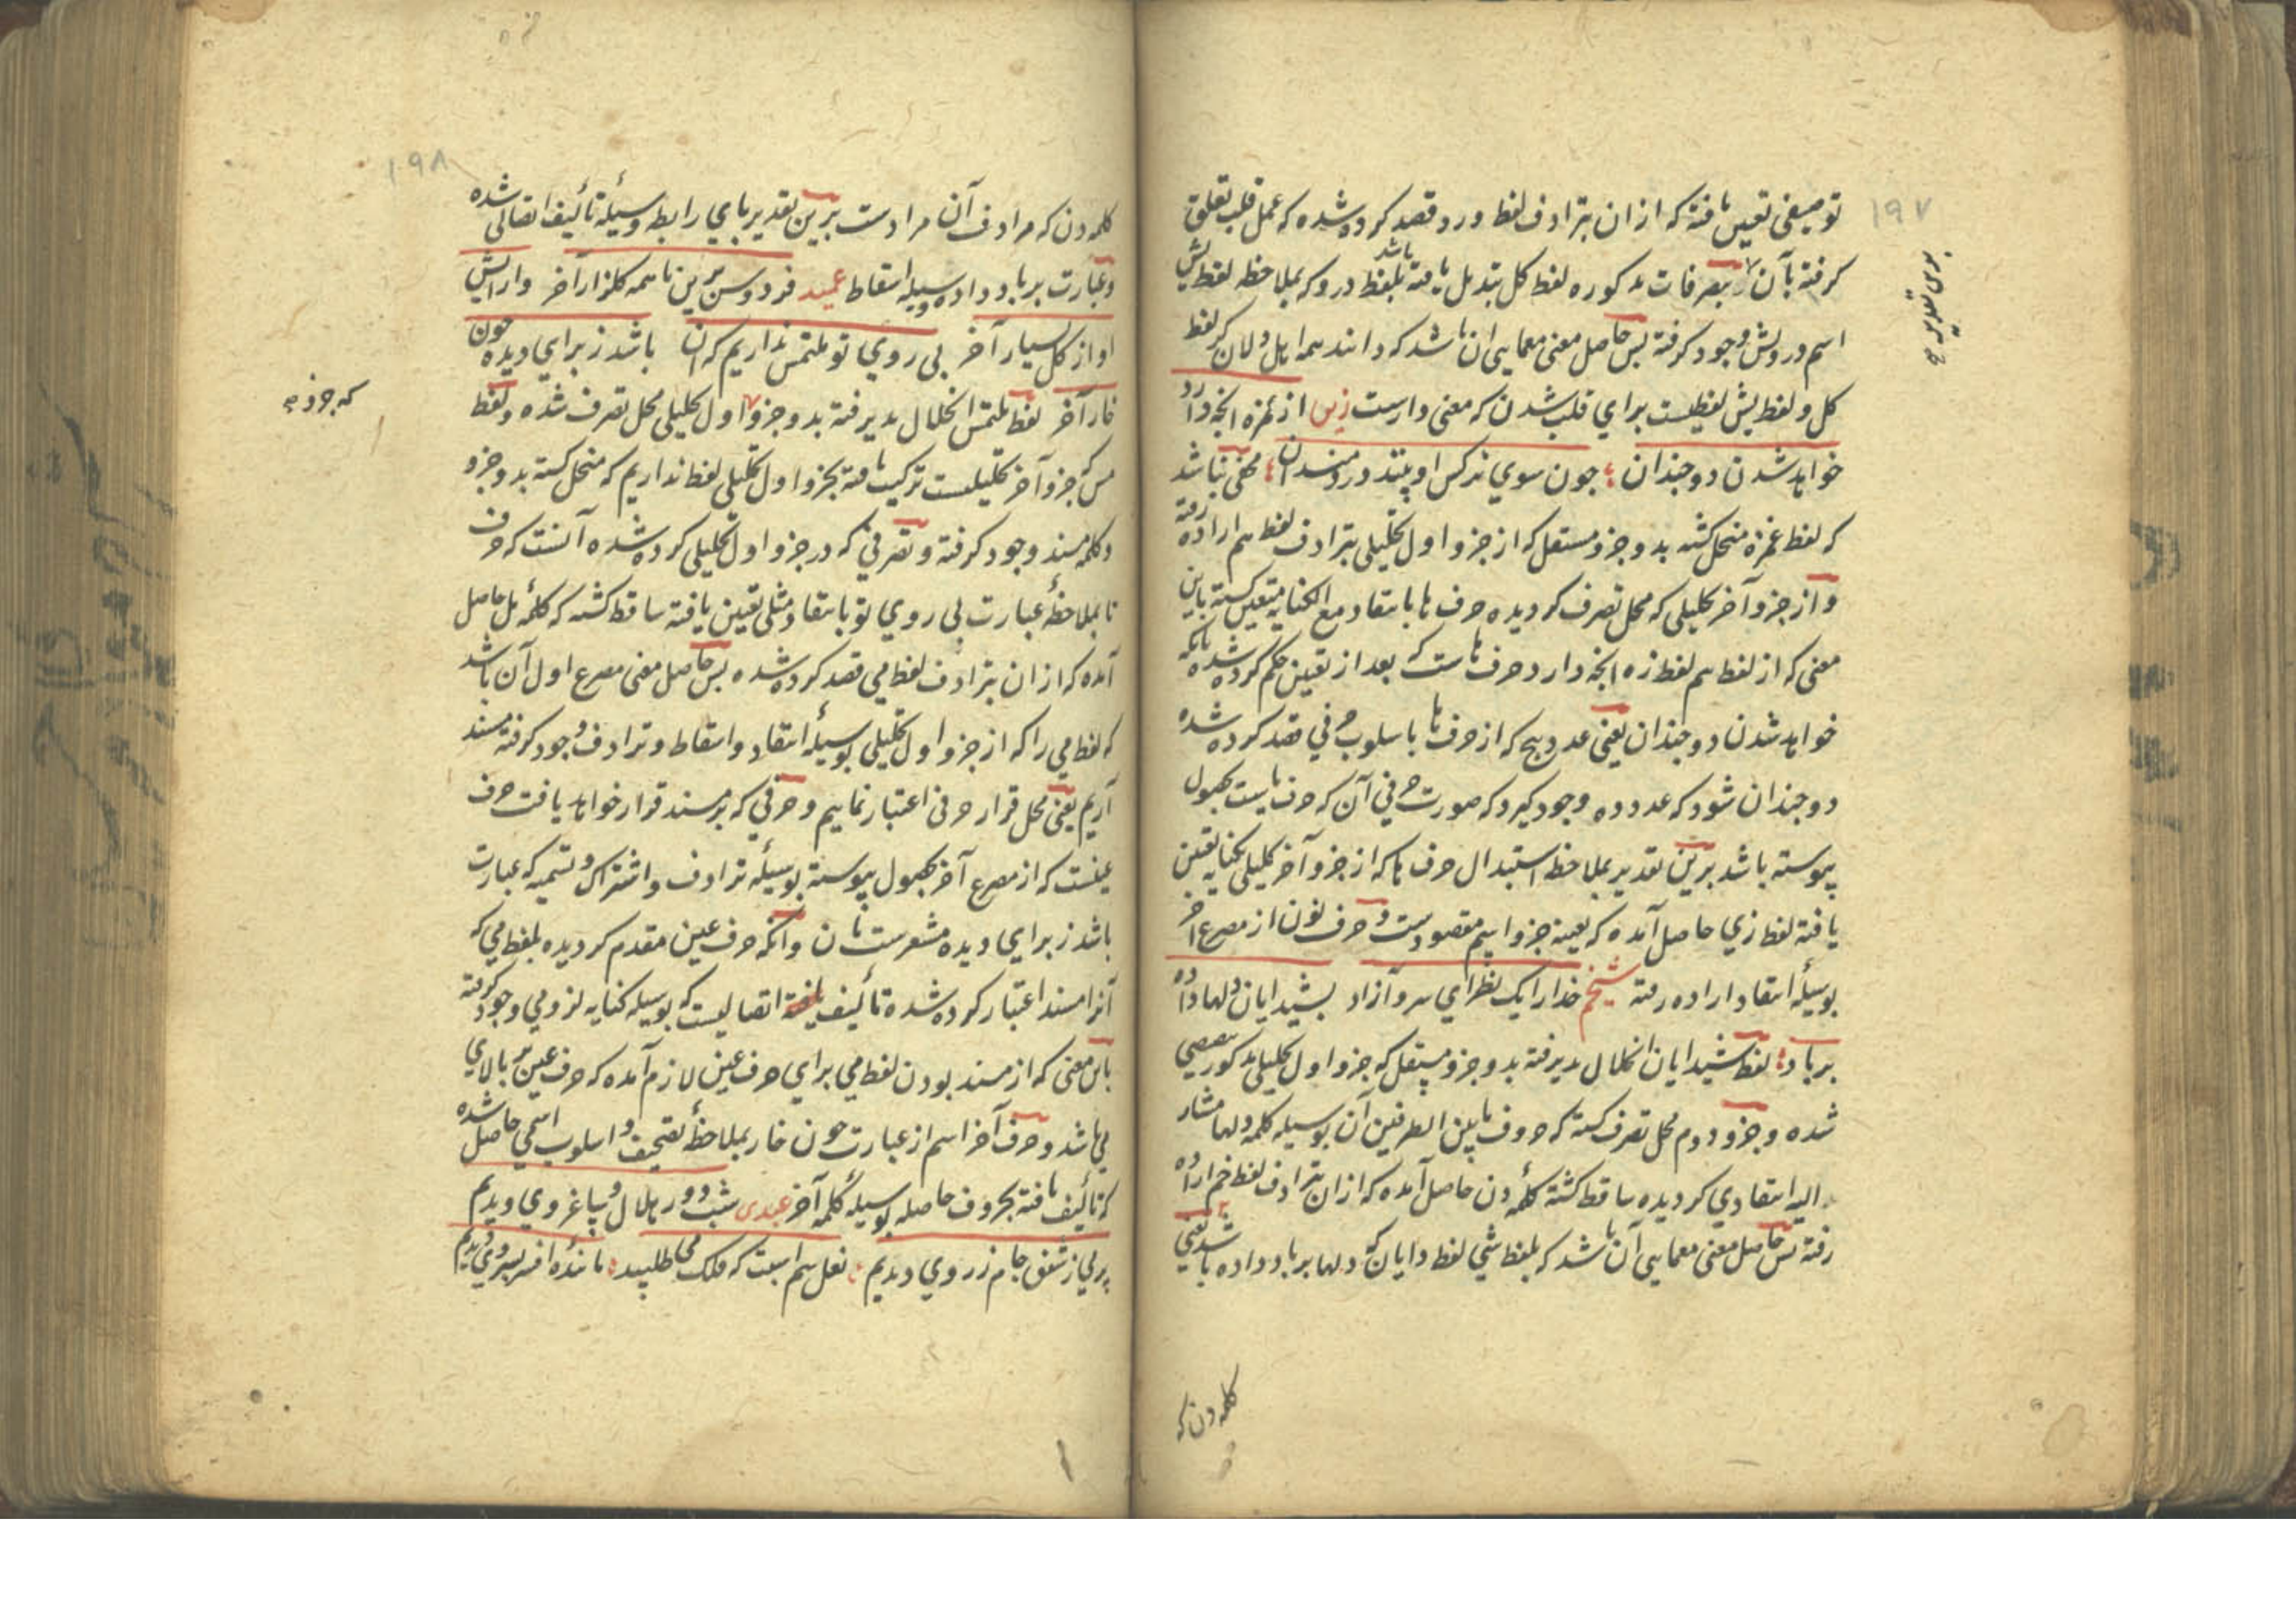 ۱۹۷
توصیفی تعیین یافته که ازان بترادف لفظ ورد قصد کرده شده که عمل قلب تعلق
کرفته بآن بتصرفات مذکوره لفظ کل تبدیل یافته باشد بلفظ درو که بملاحظه لفظ یش
اسم درویش وجود کرفته بس حاصل معنی معمایی ان باشد که دانند همه اهل دلان کر لفظ
کل و لفظ یش لفظیست برای قلب شدن که معنی دارست زین از غمزه انچه دارد
خواهد شدن دوچندان چون سوی نرکس او بیند دردمندان مخفی نباشد
که لفظ غمزه منحل کشته بدو جزو مستقل که از جزو اول تحلیلی بترادف لفظ هم اراده رفته
و از جزو آخر تحلیلی که محل تصرف کردیده حرف ها بانتقاد مع الکنایه متعین کشته باین
معنی که از لفظ هم لفظ زه انچه دارد حرف هاست که بعد از تعیین حکم کرده شده بانکه
خواهد شدن دوچندان یعنی عدد پنج که از حرف ها باسلوب حرفی قصد کرده شده
دوچندان شود که عدد ده وجود کیرد که صورت حرفی آن که حرف یاست بحصول
پیوسته باشد برین تقدیر بملاحظه استبدال حرف ها که از جزو آخر تحلیلی بکنایه تعین
یافته لفظ زی حاصل آمده که بعینه جزو اسم مقصودست و حرف نون از مصرع آخر
بوسیلهٔ انتقاد اراده رفته شیخم خدارا یک نظر ای سرو آزاد بشیدایان دلها داده
برباد لفظ شیدایان انحلال پذیرفته بدو جزو مستقل که جزو اول تحلیلی مذکور تنصیصی
شده و جزو دوم محل تصرف کشته که حروف ما بین الطرفین آن بوسیله کلمه دلها مشار
الیه انتقادی کردیده ساقط کشته کلمهٔ دن حاصل آمده که ازان بترادف لفظ خم اراده
رفته بس حاصل معنی معمایی آن باشد که بلفظ شی لفظ دایان که دلها برباد داده باشد یعنی
کلمه دن که
۱۹۸
کلمه دن که مرادف آن مرادست برین تقدیر بای رابط وسیلهٔ تألیف اتصالی شده
و عبارت برباد داده وسیله اسقاط عمید فردوس برین با همه کلزار آخر و ارایش
او از کل بسیار آخر بی روی تو ملتمس نداریم که ان باشد ز برای دیده چون
خار آخر لفظ ملتمس انحلال پذیرفته بدو جزو اول تحلیلی محل تصرف شده و لفظ
مس که جزو آخر تحلیلیست ترکیب یافته بجزو اول تحلیلی لفظ نداریم که منحل کشته بدو جزو
و کلمه مسند وجود کرفته و تصرفی که در جزو اول تحلیلی کرده شده آنست که حرف
تا بملاحظهٔ عبارت بی روی تو بانتقاد مثلی تعیین یافته ساقط کشته که کلمهٔ مل حاصل
آمده که ازان بترادف لفظ می قصد کرده شده بس حاصل معنی مصرع اول آن باشد
که لفظ می را که از جزو اول تحلیلی بوسیلهٔ انتقاد و اسقاط و ترادف وجود کرفته مسند
آریم یعنی محل قرار حرفی اعتبار نماییم و حرفی که بر مسند قرار خواهد یافت حرف
عینست که از مصرع آخر بحصول پیوسته بوسیلهٔ ترادف و اشتراک و تسمیه که عبارت
باشد ز برای دیده مشعرست بان و آنکه حرف عین مقدم کردیده بلفظ می که
آنرا مسند اعتبار کرده شده تألیف اتصالیست که بوسیله کنایه لزومی وجود کرفته
باین معنی که از مسند بودن لفظ می برای حرف عین لازم آمده که حرف عین بر بالای
می باشد و حرف آخر اسم از عبارت چون خار بملاحظهٔ تصحیف و اسلوب اسمی حاصل شده
که تألیف یافته بحروف حاصله بوسیلهٔ کلمه آخر عبدی شب دور هلال و ساغر وی دیدیم
پر می ز شفق جام زر وی دیدیم نعل سم اسبت که فلک می طلبید ماننده افسر بسر وی دیدیم
که جزو